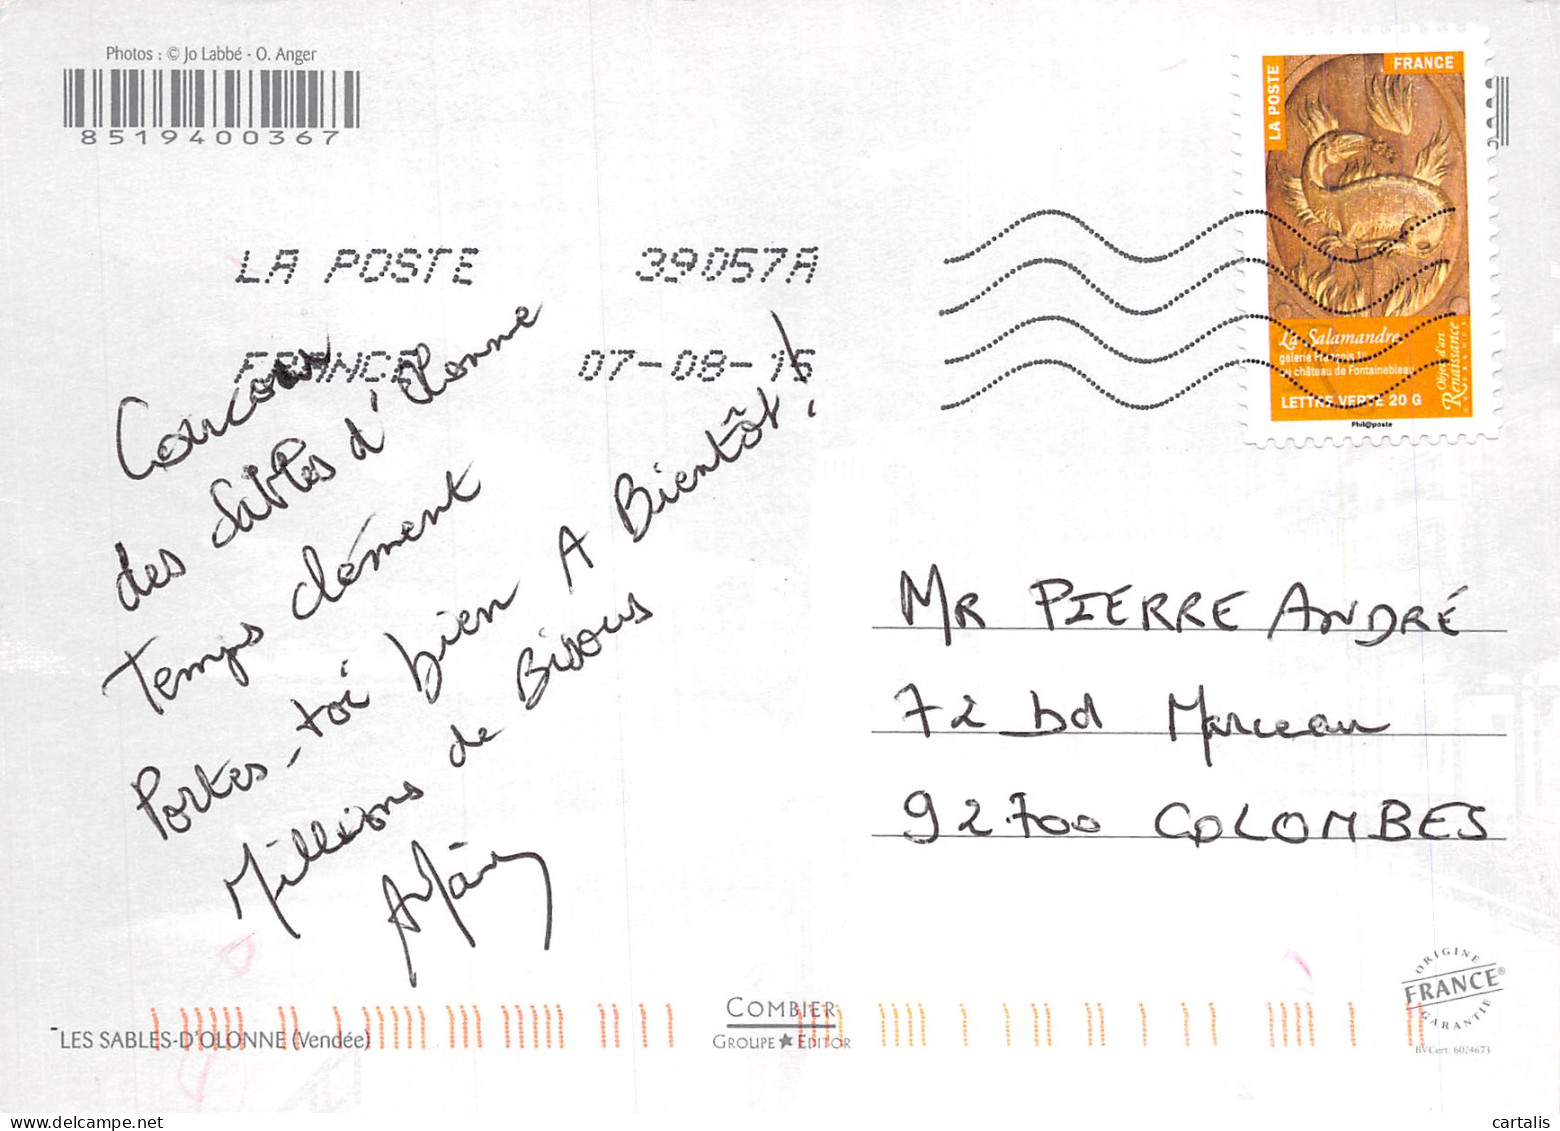 Photos : © Jo Labbé - O. Anger
8519400367
LA POSTE
FRANCE
La Salamandre
galerie François 1er
au château de Fontainebleau
Objet d'art
Renaissance
EN FRANCE
LETTRE VERTE 20 G
Phil@poste
LA POSTE 39057A
FRANCE 07-08-15
Coucou
des Sables d'Olonne
Temps clément
Portes-toi bien A Bientôt !
Millions de Bisous
MR PIERRE ANDRÉ
72 bd Marceau
92700 COLOMBES
ORIGINE
FRANCE®
GARANTIE
BVCert. 6024673
COMBIER
GROUPE ★ EDITOR
LES SABLES-D'OLONNE (Vendée)
cartalis